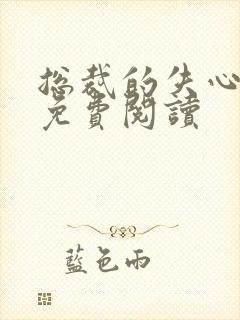 总裁的失心
免費閱讀
藍色雨